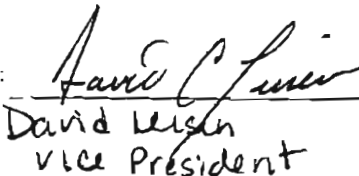 :
David C
David
Vice President